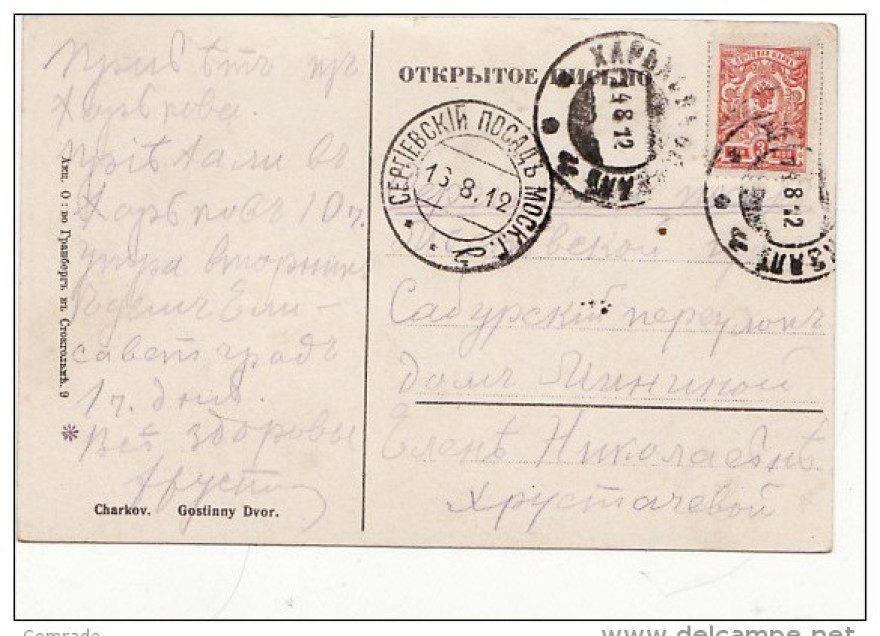 ОТКРЫТОЕ ПИСЬМО
Привѣтъ изъ
Харькова.
Пріѣхали въ
Харьковъ 10 ч.
утра вторникъ
Ели-
саветградъ
1 ч. дня.
Всѣ здоровы
Акц. О: во Гранбергъ въ Стокгольмѣ. 9
Charkov. Gostinny Dvor.
СЕРГІЕВСКІЙ ПОСАДЪ МОСК. Г.
16.8.12
ХАРЬКОВЪ ВОКЗАЛЪ
14 8 12
14 8 12
3
Московской
Сабурскій переулокъ
домъ
Еленѣ Николаевнѣ
Хрусталевой
Comrade
www.delcampe.net